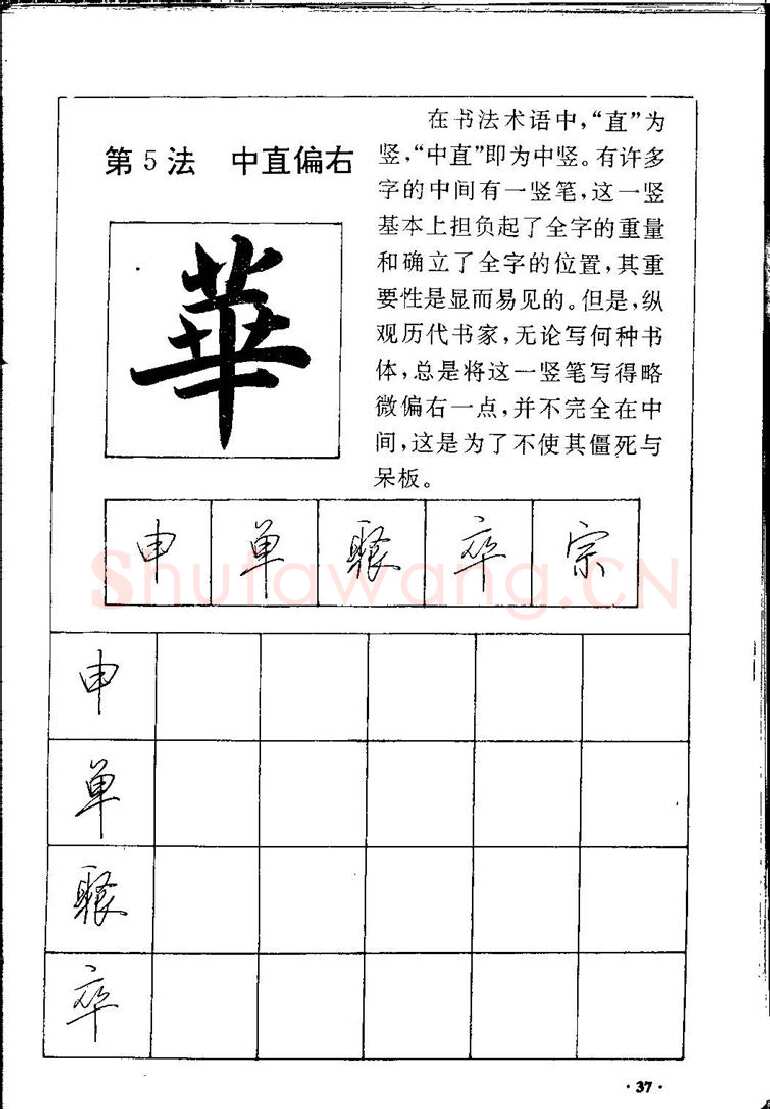 第5法 中直偏右
在书法术语中,“直”为
竖,“中直”即为中竖。有许多
字的中间有一竖笔,这一竖
基本上担负起了全字的重量
和确立了全字的位置,其重
要性是显而易见的。但是,纵
观历代书家,无论写何种书
体,总是将这一竖笔写得略
微偏右一点,并不完全在中
间,这是为了不使其僵死与
呆板。
華
申 单 聚 卒 宗
Shufawang.CN
申
单
聚
卒
·37·